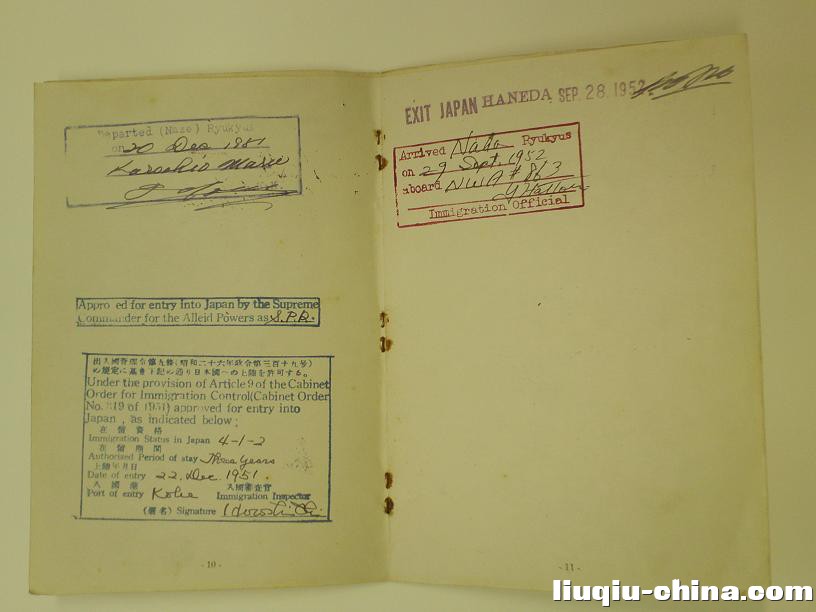 Departed (Naze) Ryukyus
on 20 Dec 1951
Kuroshio Maru
Approved for entry Into Japan by the Supreme
Commander for the Alleid Powers as S.P.R.
出入國管理令第九條(昭和二十六年政令第三百十九号)
の規定に基き下記の通り日本國への上陸を許可する。
Under the provision of Article 9 of the Cabinet
Order for Immigration Control(Cabinet Order
No. 319 of 1951) approved for entry into
Japan, as indicated below;
在留資格
Immigration Status in Japan 4-1-2
在留期間
Authorized Period of stay Three Years
上陸年月日
Date of entry 22. Dec. 1951.
入國港 入國審査官
Port of entry Kobe Immigration Inspector
(署名) Signature
- 10 -
EXIT JAPAN HANEDA SEP. 28. 1952
Arrived Naha Ryukyus
on 29 Sept. 1952
aboard NWA # 863
Immigration Official
- 11 -
liuqiu-china.com